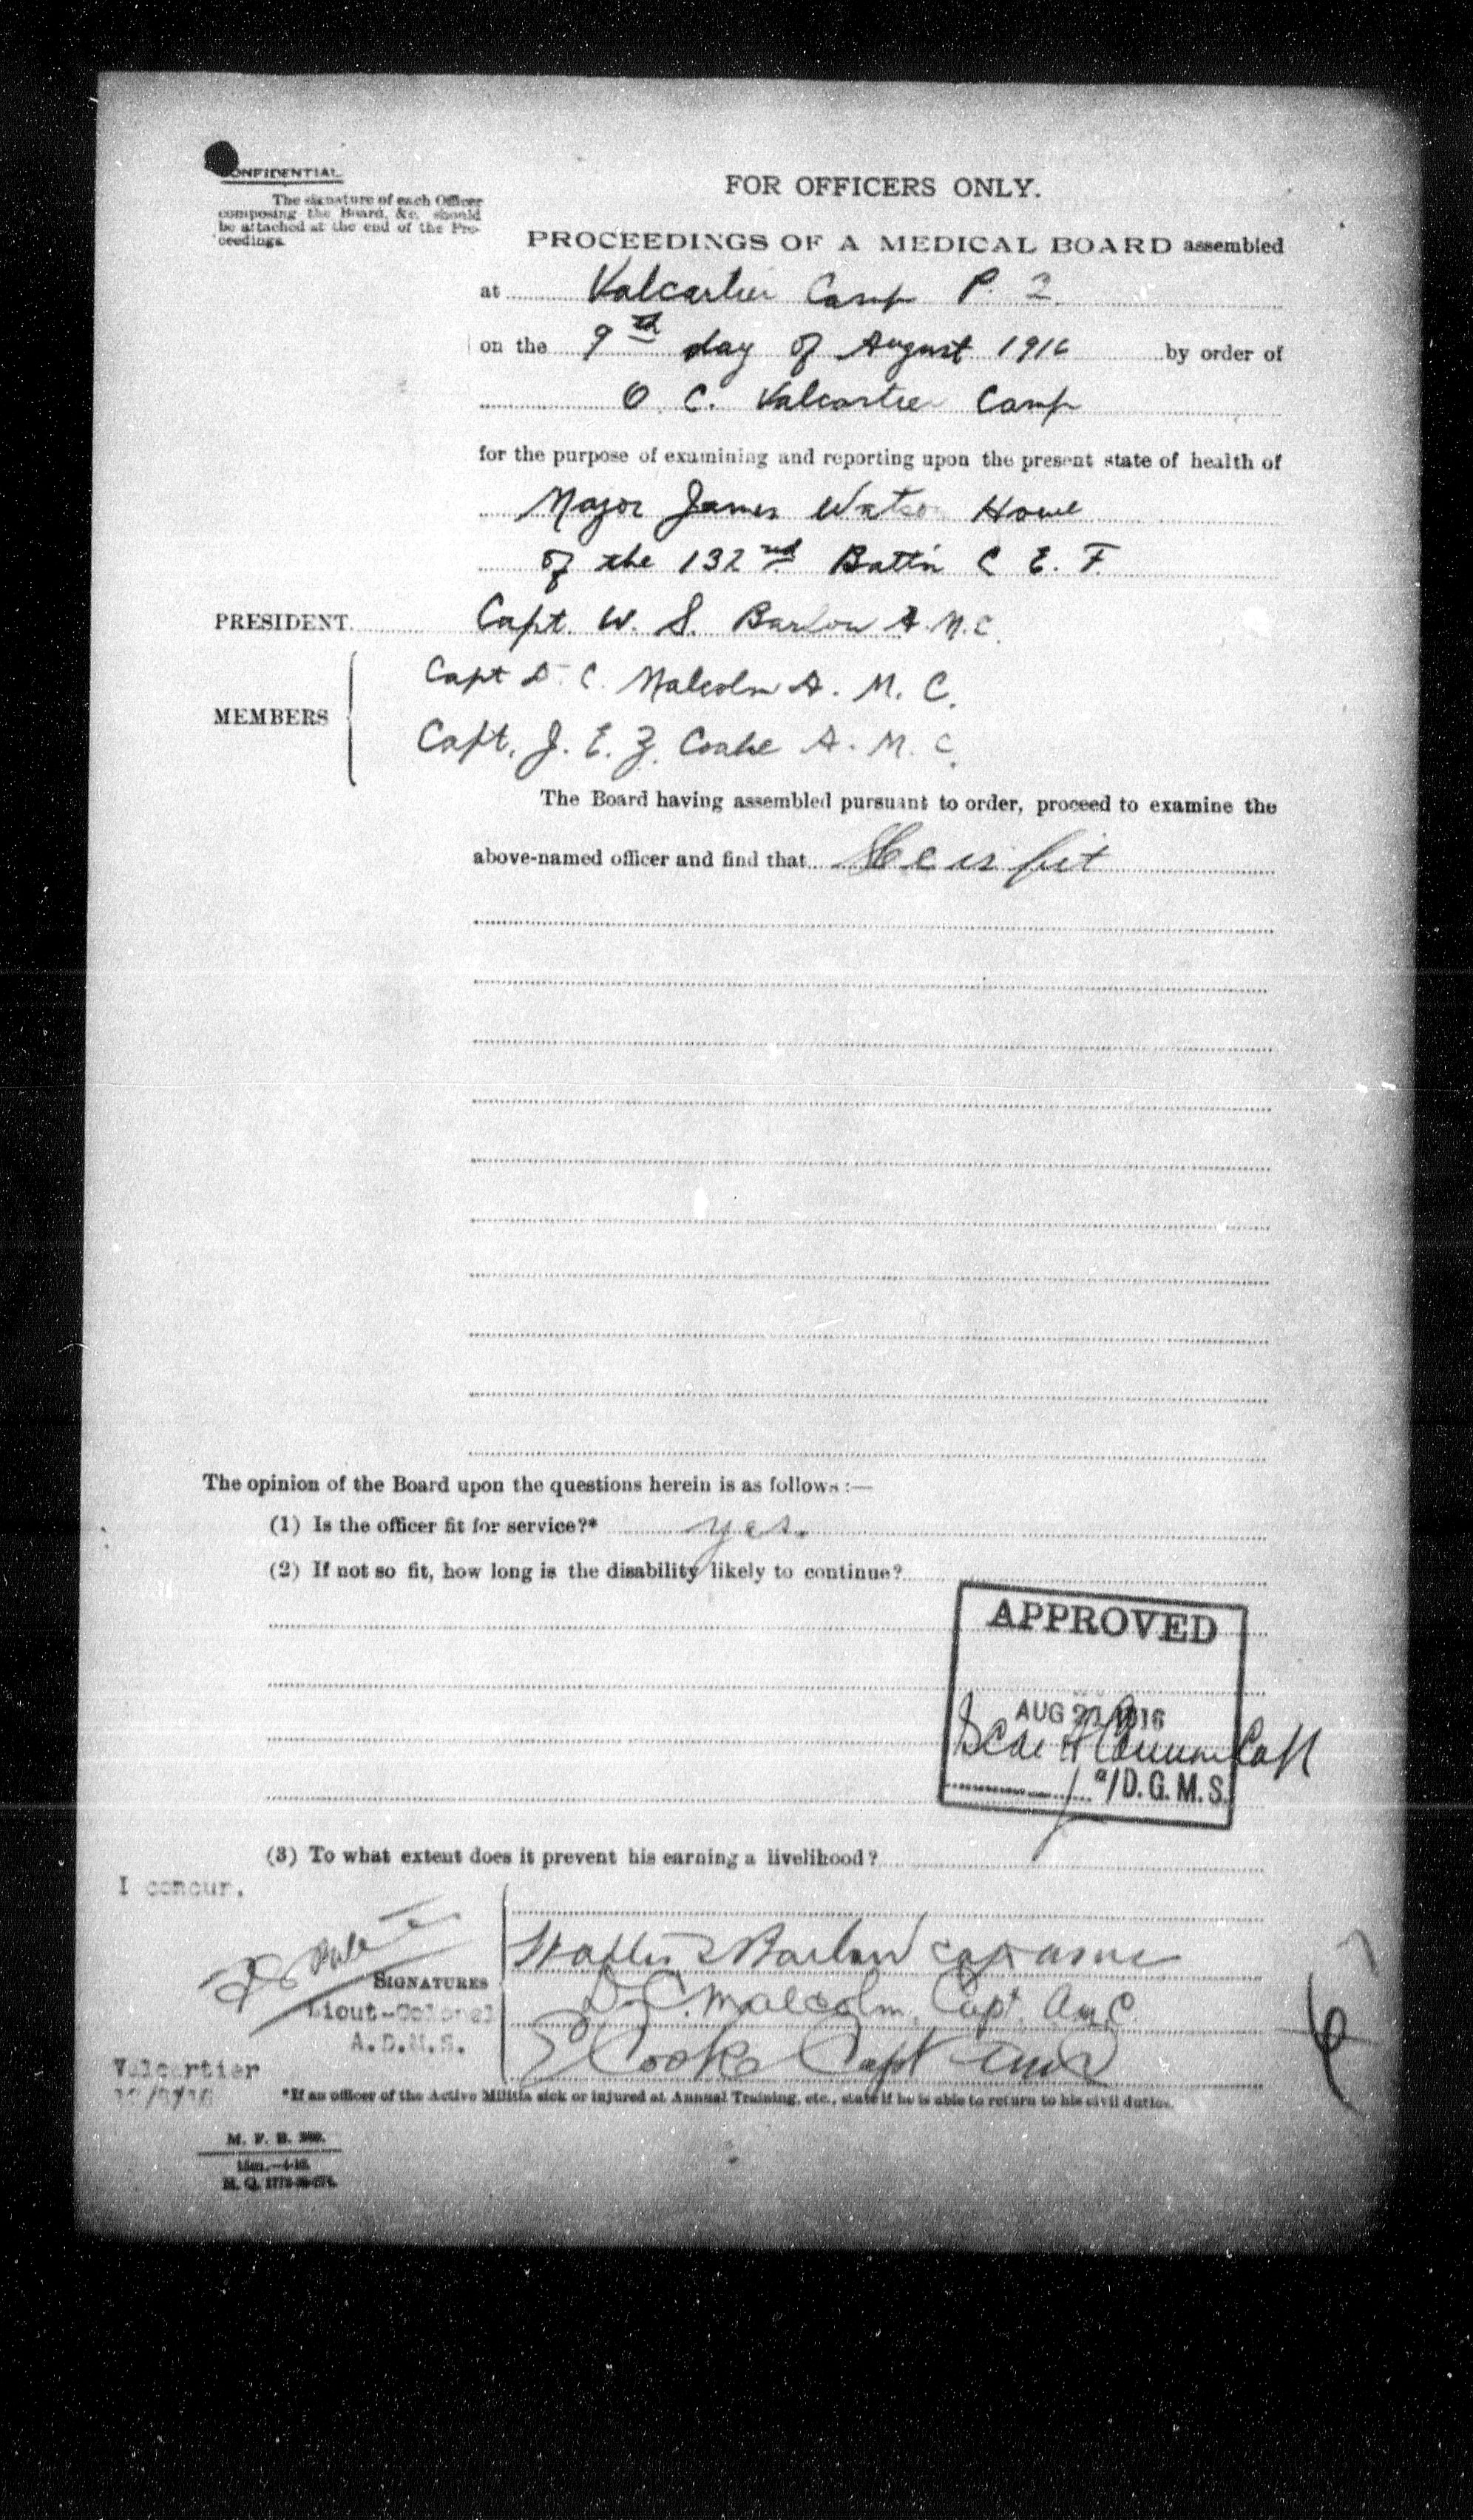 CONFIDENTIAL
The signature of each Officer
composing the Board, &c. should
be attached at the end of the Pro-
ceedings.
FOR OFFICERS ONLY.
PROCEEDINGS OF A MEDICAL BOARD assembled
at Valcartier Camp P. 2
on the 9th day of August 1916 by order of
O. C. Valcartier Camp
for the purpose of examining and reporting upon the present state of health of
Major James Watson Howe
of the 132nd Batt'n C. E. F.
PRESIDENT Capt. W. S. Barlow A.M.C.
MEMBERS
Capt D. C. Malcolm A. M. C.
Capt. J. E. Z. Cooke A. M. C.
The Board having assembled pursuant to order, proceed to examine the
above-named officer and find that He is fit
The opinion of the Board upon the questions herein is as follows:—
(1) Is the officer fit for service?* yes.
(2) If not so fit, how long is the disability likely to continue?
APPROVED
AUG 1916
Capt
a/D.G.M.S.
(3) To what extent does it prevent his earning a livelihood?
I concur.
Walter S Barlow Capt AMC
SIGNATURES
D. C. Malcolm, Capt. A.M.C.
Lieut-Colonel
A.D.M.S.
Cooke Capt AMC
Valcartier
*If an officer of the Active Militia sick or injured at Annual Training, etc., state if he is able to return to his civil duties.
M. F. B.
H. Q.